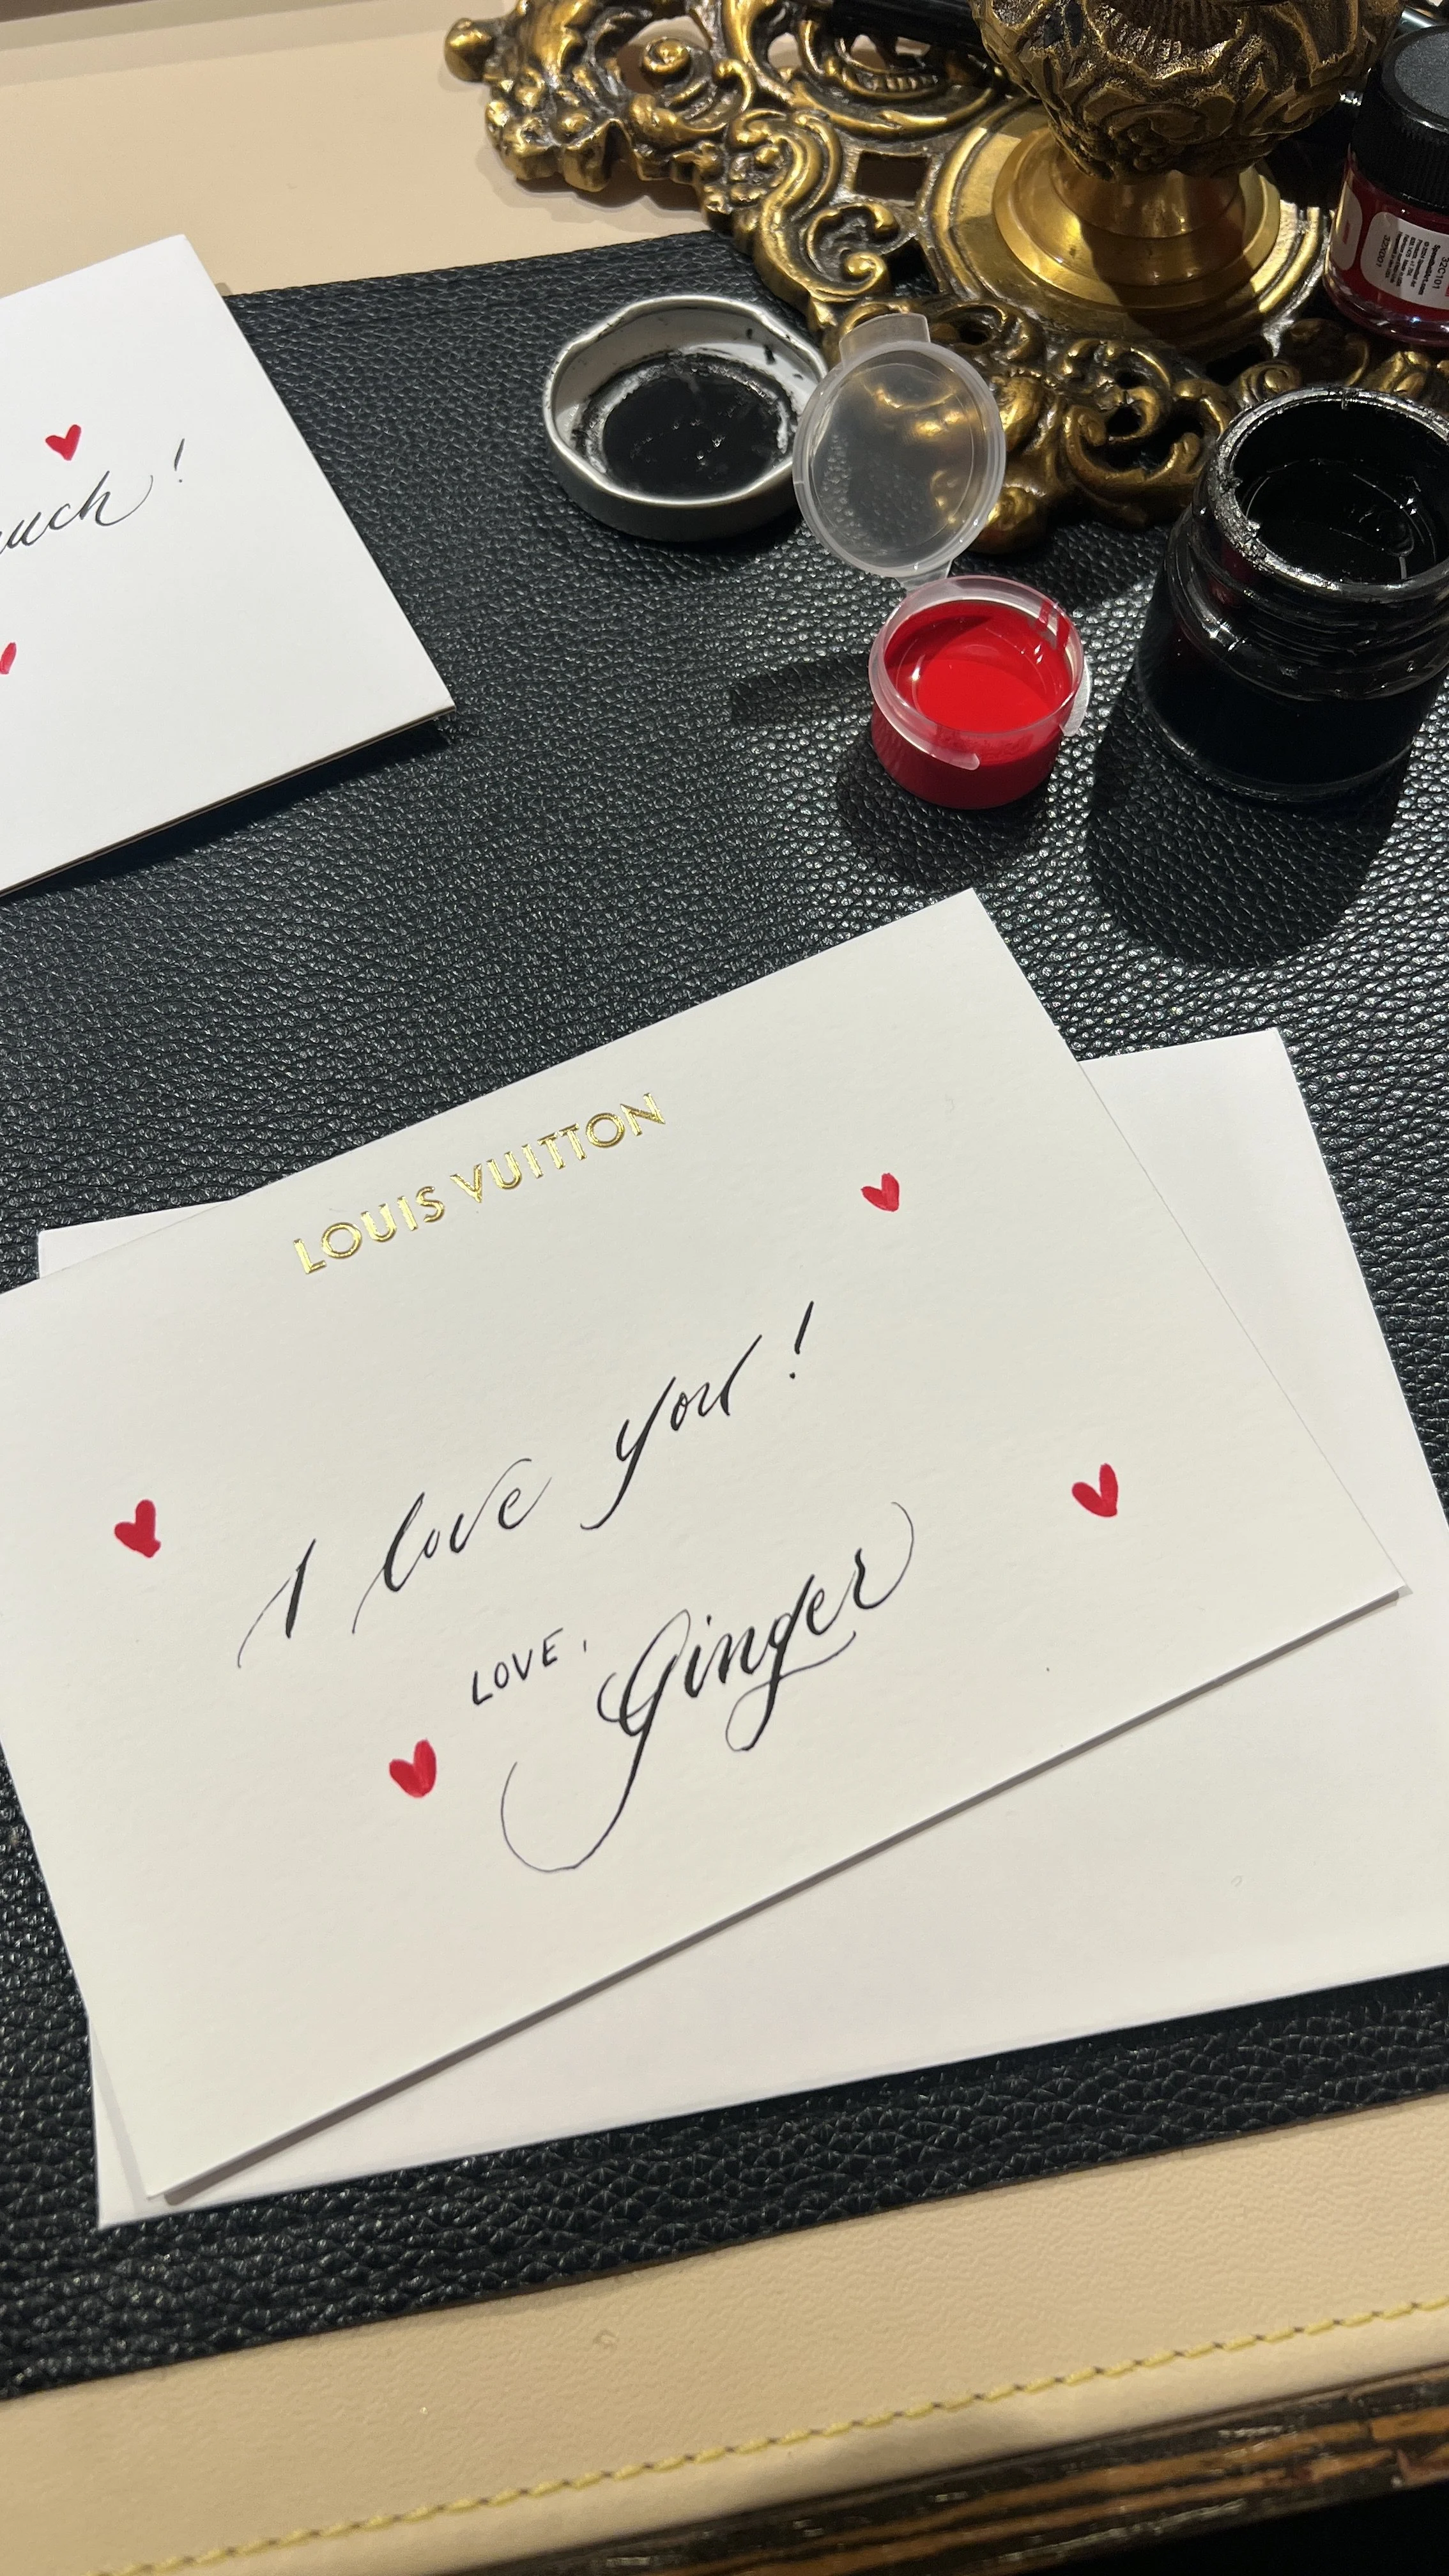 much!
LOUIS VUITTON
I love you!
LOVE,
Ginger